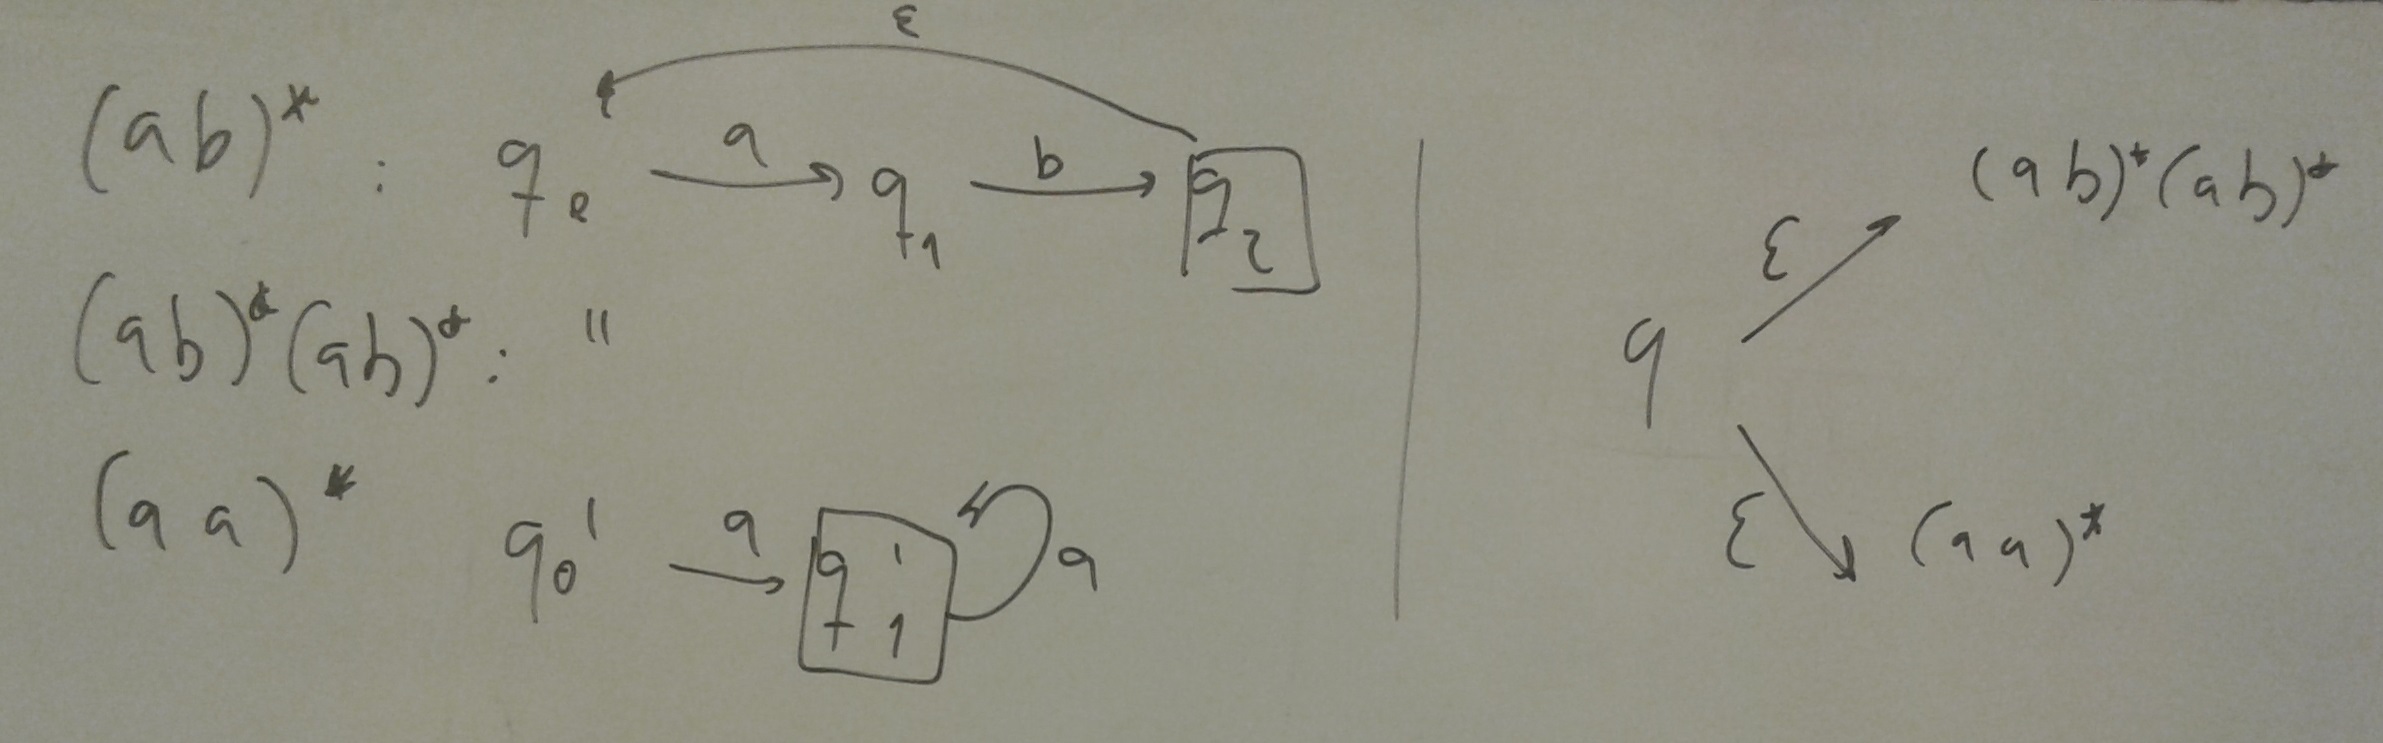 ε
(ab)* : q₀ a q₁ b q₂
(ab)*(ab)* : "
(aa)* q₀' a q₁' a
ε (ab)*(ab)*
q
ε (aa)*